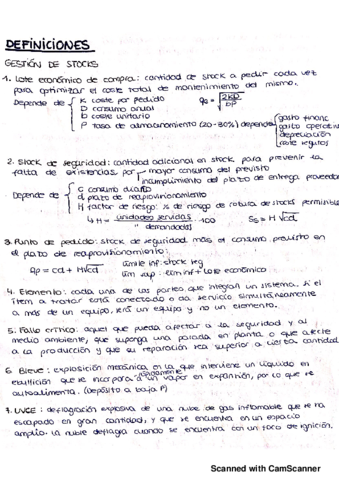 DEFINICIONES
GESTIÓN DE STOCKS
1. Lote económico de compra: cantidad de stock a pedir cada vez
para optimizar el coste total de mantenimiento del mismo.
Depende de { K coste por pedido
D consumo anual
b coste unitario
P tasa de almacenamiento (20-30%) depende { gasto financ
gasto operativo
depreciación
coste seguros
Qe = √(2KD/bP)
2. Stock de seguridad: cantidad adicional en stock para prevenir la
falta de existencias por { mayor consumo del previsto
incumplimiento del plazo de entrega proveedor
Depende de { C consumo diario
d plazo de reaprovisionamiento
H factor de riesgo: % de riesgo de rotura de stocks permisible
↳ H = unidades servidas / " demandadas · 100
Ss = H √cd
3. Punto de pedido: stock de seguridad más el consumo previsto en
el plazo de reaprovisionamiento:
Qp = cd + H√cd
límite inf: stock seg
lím sup: lím inf + lote económico
4. Elemento: cada una de las partes que integran un sistema. Si el
ítem a tratar está conectado o da servicio simultáneamente
a más de un equipo, será un equipo y no un elemento.
5. Fallo crítico: aquel que pueda afectar a la seguridad y al
medio ambiente, que suponga una parada en planta o que afecte
a la producción y que su reparación sea superior a cierta cantidad
6. Bleve: explosión mecánica en la que interviene un líquido en
ebullición que se incorpora rápidamente a un vapor en expansión, por lo que se
autoalimenta. (depósito a baja P)
7. UVCE: deflagración explosiva de una nube de gas inflamable que se ha
escapado en gran cantidad, y que se encuentra en un espacio
amplio. La nube deflagra cuando se encuentra con un foco de ignición.
Scanned with CamScanner